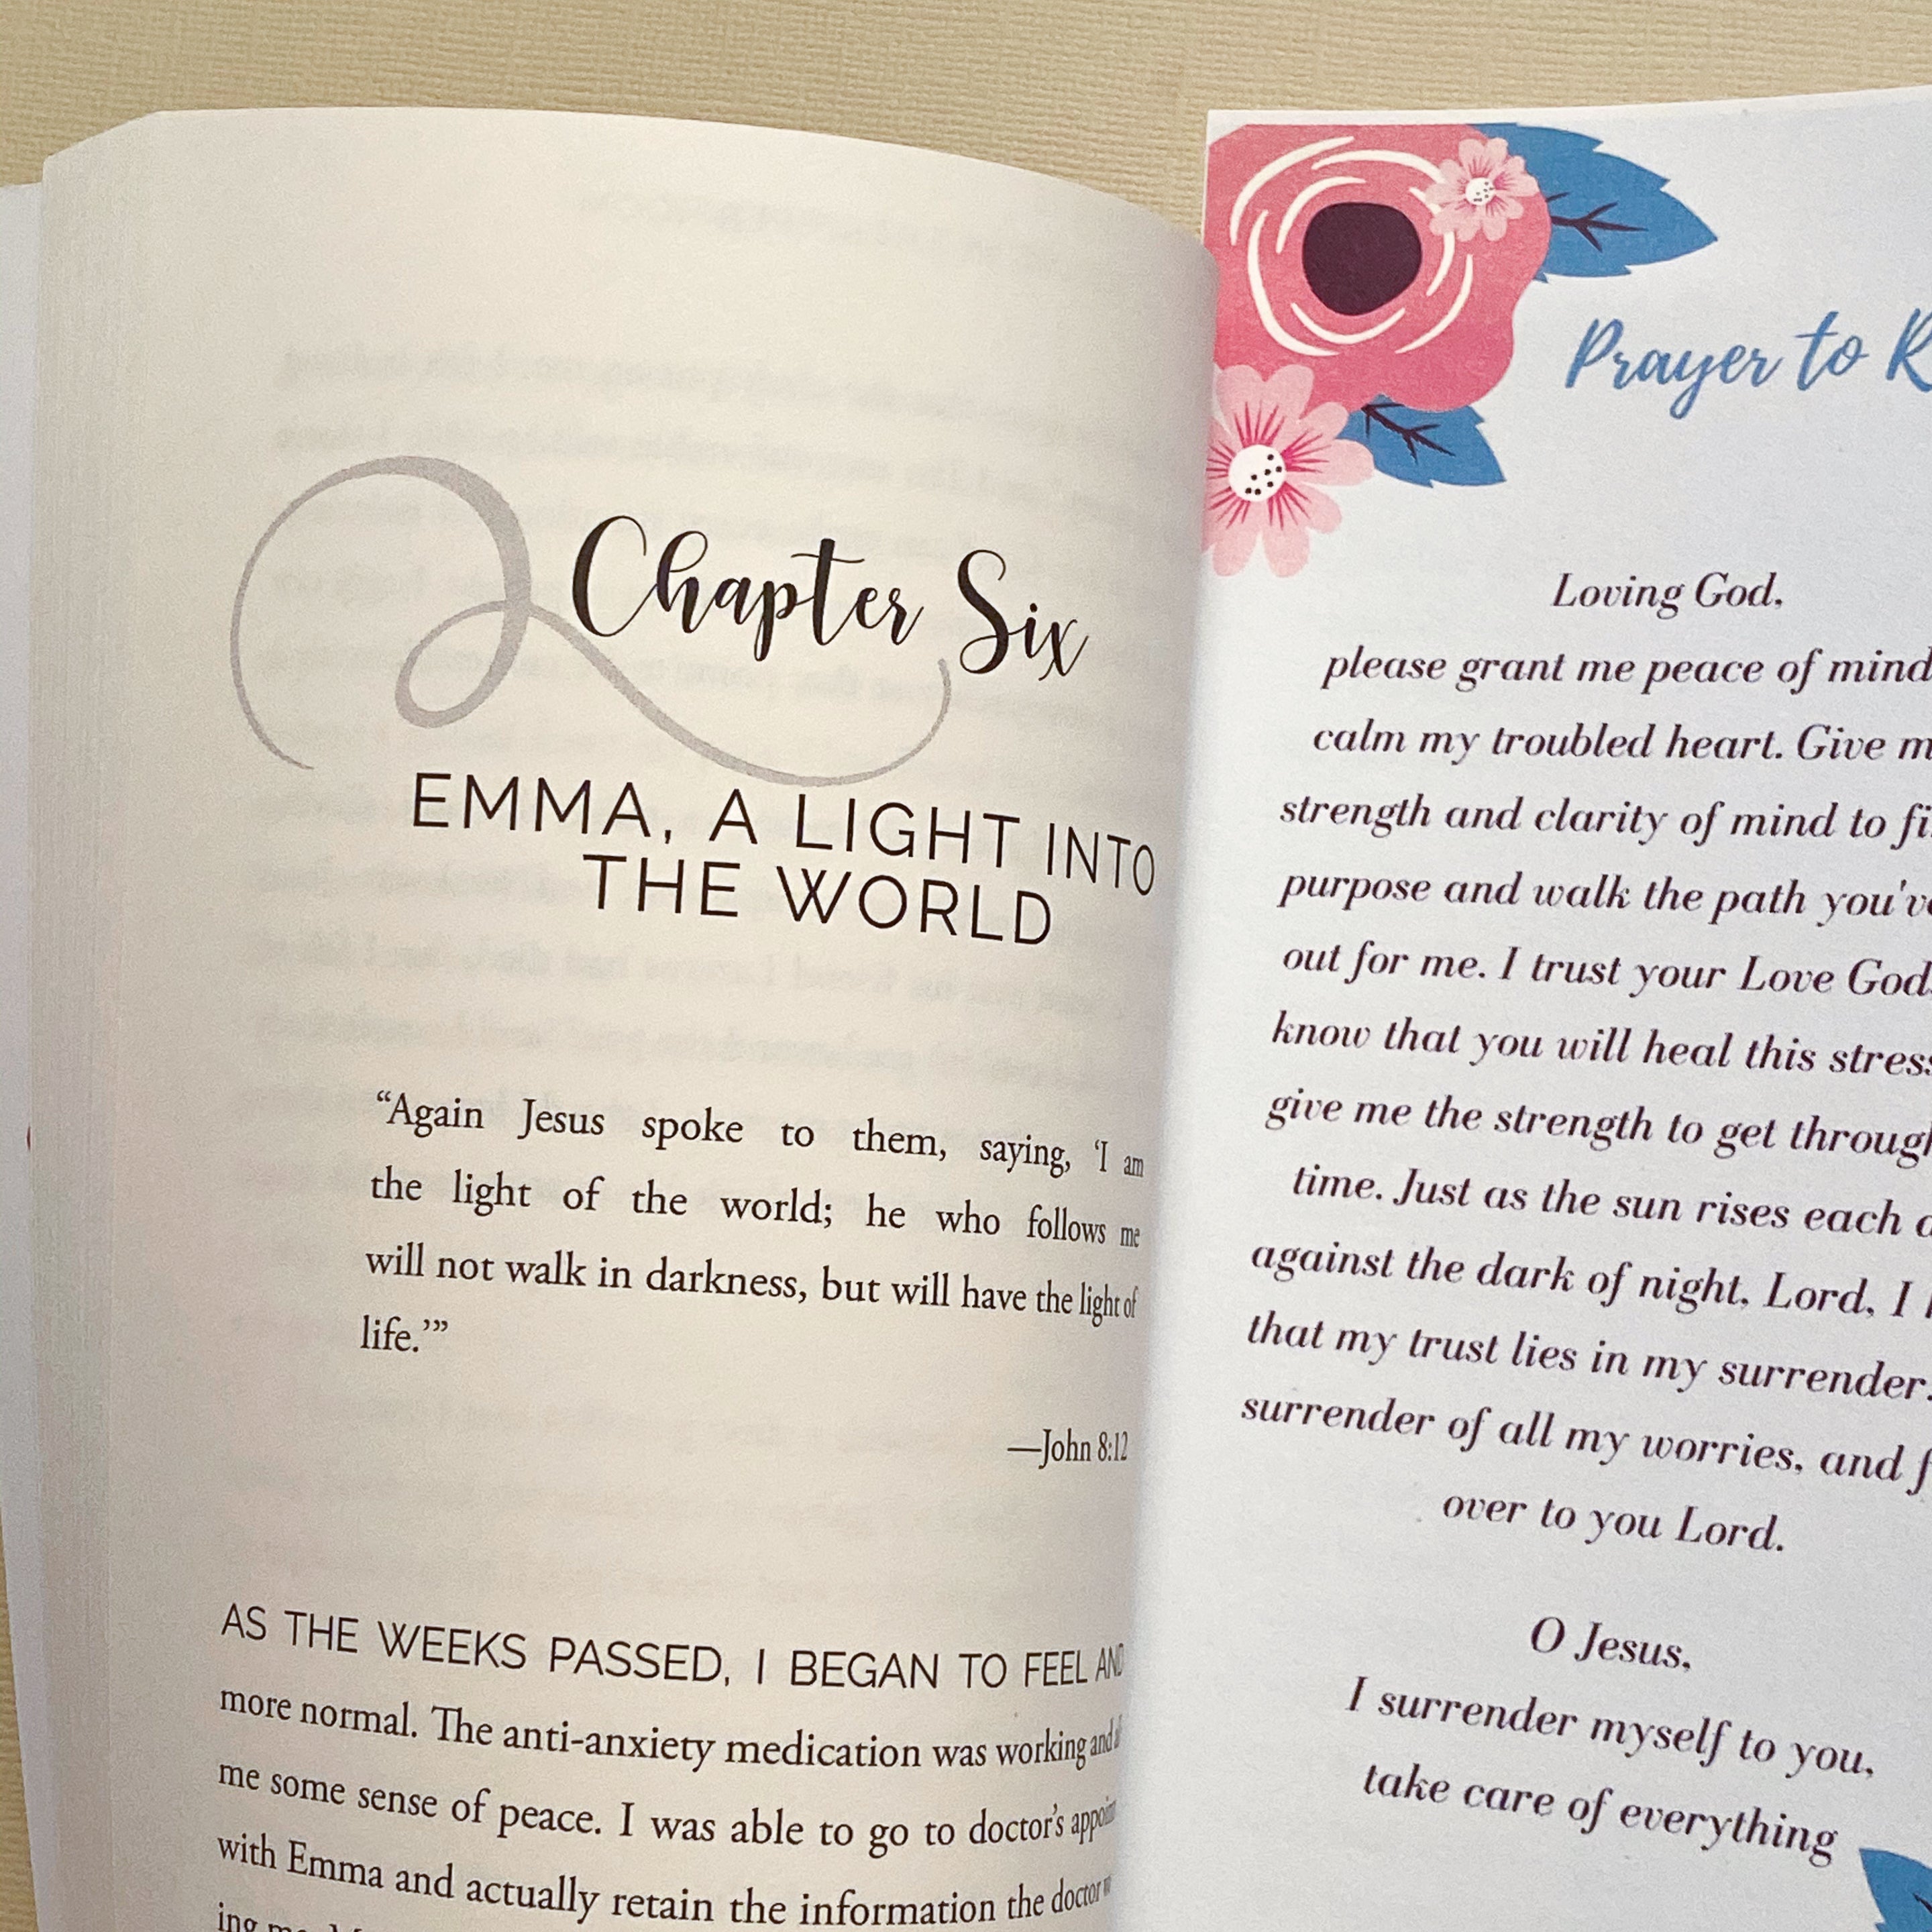 Chapter Six
EMMA, A LIGHT INTO
THE WORLD
“Again Jesus spoke to them, saying, ‘I am
the light of the world; he who follows me
will not walk in darkness, but will have the light of
life.’”
—John 8:12
AS THE WEEKS PASSED, I BEGAN TO FEEL AND
more normal. The anti-anxiety medication was working and
me some sense of peace. I was able to go to doctor’s
with Emma and actually retain the information the doctor
Prayer to
Loving God,
please grant me peace of mind
calm my troubled heart. Give
strength and clarity of mind to
purpose and walk the path
out for me. I trust your Love God
know that you will heal this
give me the strength to get
time. Just as the sun rises each
against the dark of night, Lord, I
that my trust lies in my surrender.
surrender of all my worries, and
over to you Lord.
O Jesus,
I surrender myself to you,
take care of everything